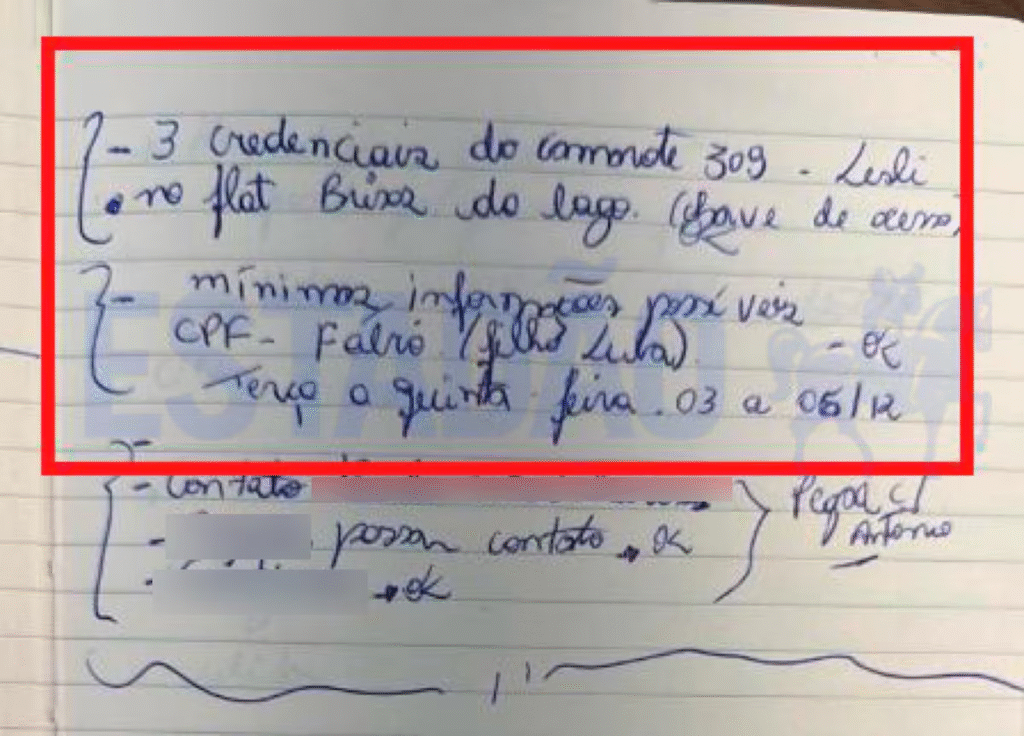 - 3 credenciais do camarote 309 - Lesli
• no flat Brisa do lago. (chave de acesso)
- mínimas informações possíveis
CPF - Fabio (filho Lula) - ok
Terça a quinta-feira. 03 a 05/12
- Contato
Pegar c/
Antonio
- passar contato → ok
• → ok
ESTADÃO